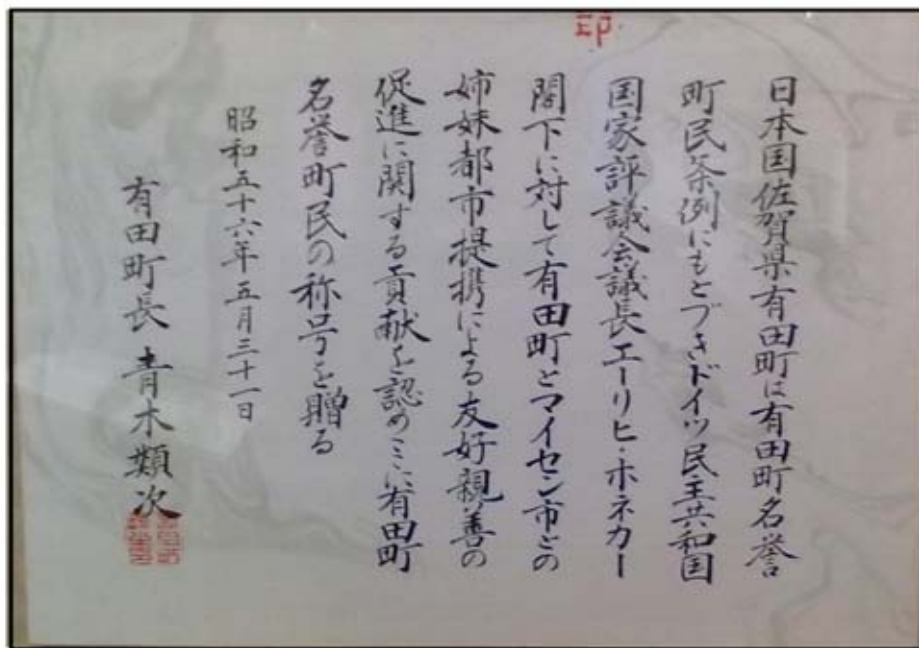 印
日本国佐賀県有田町は有田町名誉
町民条例にもとづきドイツ民主共和国
国家評議会議長エーリヒ・ホネカー
閣下に対して有田町とマイセン市との
姉妹都市提携による友好親善の
促進に関する貢献を認めここに有田町
名誉町民の称号を贈る
昭和五十六年五月三十一日
有田町長 青木類次